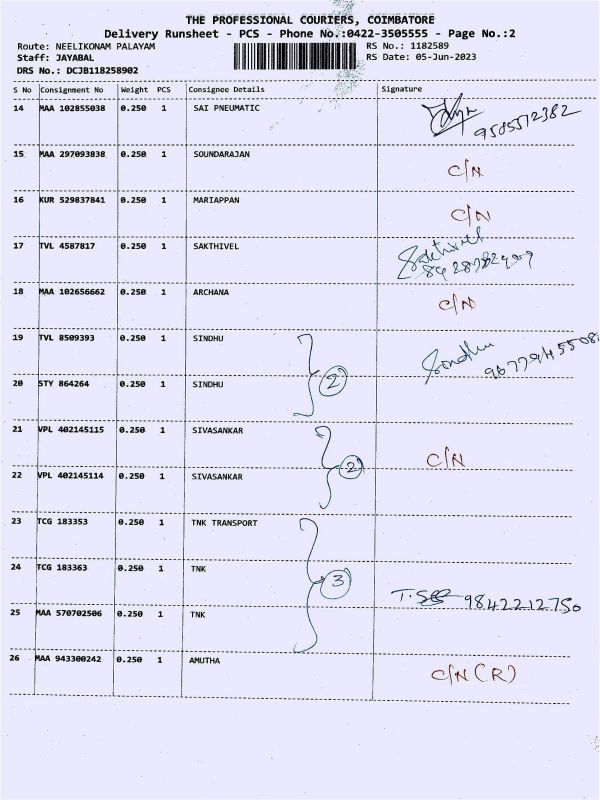 THE PROFESSIONAL COURIERS, COIMBATORE
Delivery Runsheet - PCS - Phone No.:0422-3505555 - Page No.:2
Route: NEELIKONAM PALAYAM RS No.: 1182589
Staff: JAYABAL RS Date: 05-Jun-2023
DRS No.: DCJB118258902
S No Consignment No Weight PCS Consignee Details Signature
14 MAA 102855038 0.250 1 SAI PNEUMATIC
9505572382
15 MAA 297093838 0.250 1 SOUNDARAJAN
C/N
16 KUR 529837841 0.250 1 MARIAPPAN
C/N
17 TVL 4587817 0.250 1 SAKTHIVEL Sakthivel
18 MAA 102656662 0.250 1 ARCHANA C/N
19 TVL 8509393 0.250 1 SINDHU
2
20 STY 864264 0.250 1 SINDHU
21 VPL 402145115 0.250 1 SIVASANKAR
2 C/N
22 VPL 402145114 0.250 1 SIVASANKAR
23 TCG 183353 0.250 1 TNK TRANSPORT
24 TCG 183363 0.250 1 TNK
3
9842212750
25 MAA 570702506 0.250 1 TNK
26 MAA 943300242 0.250 1 AMUTHA
C/N (R)